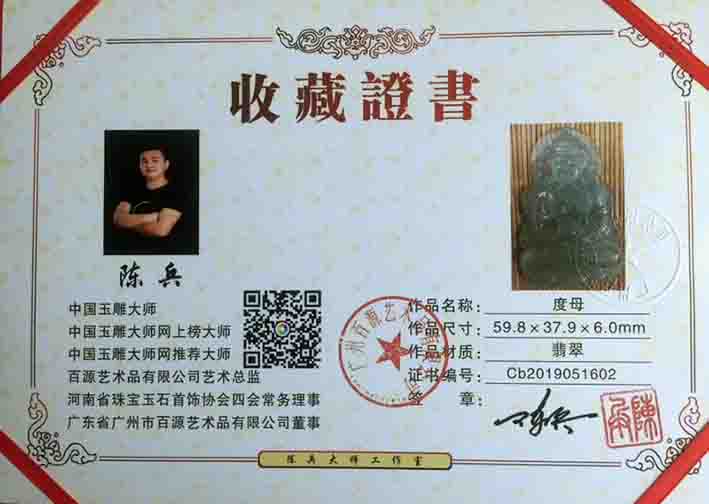 收藏證書
陳兵
中国玉雕大师
中国玉雕大师网上榜大师
中国玉雕大师网推荐大师
百源艺术品有限公司艺术总监
河南省珠宝玉石首饰协会四会常务理事
广东省广州市百源艺术品有限公司董事
作品名称：度母
作品尺寸：59.8×37.9×6.0mm
作品材质：翡翠
证书编号：Cb2019051602
签章：
陈兵大师工作室